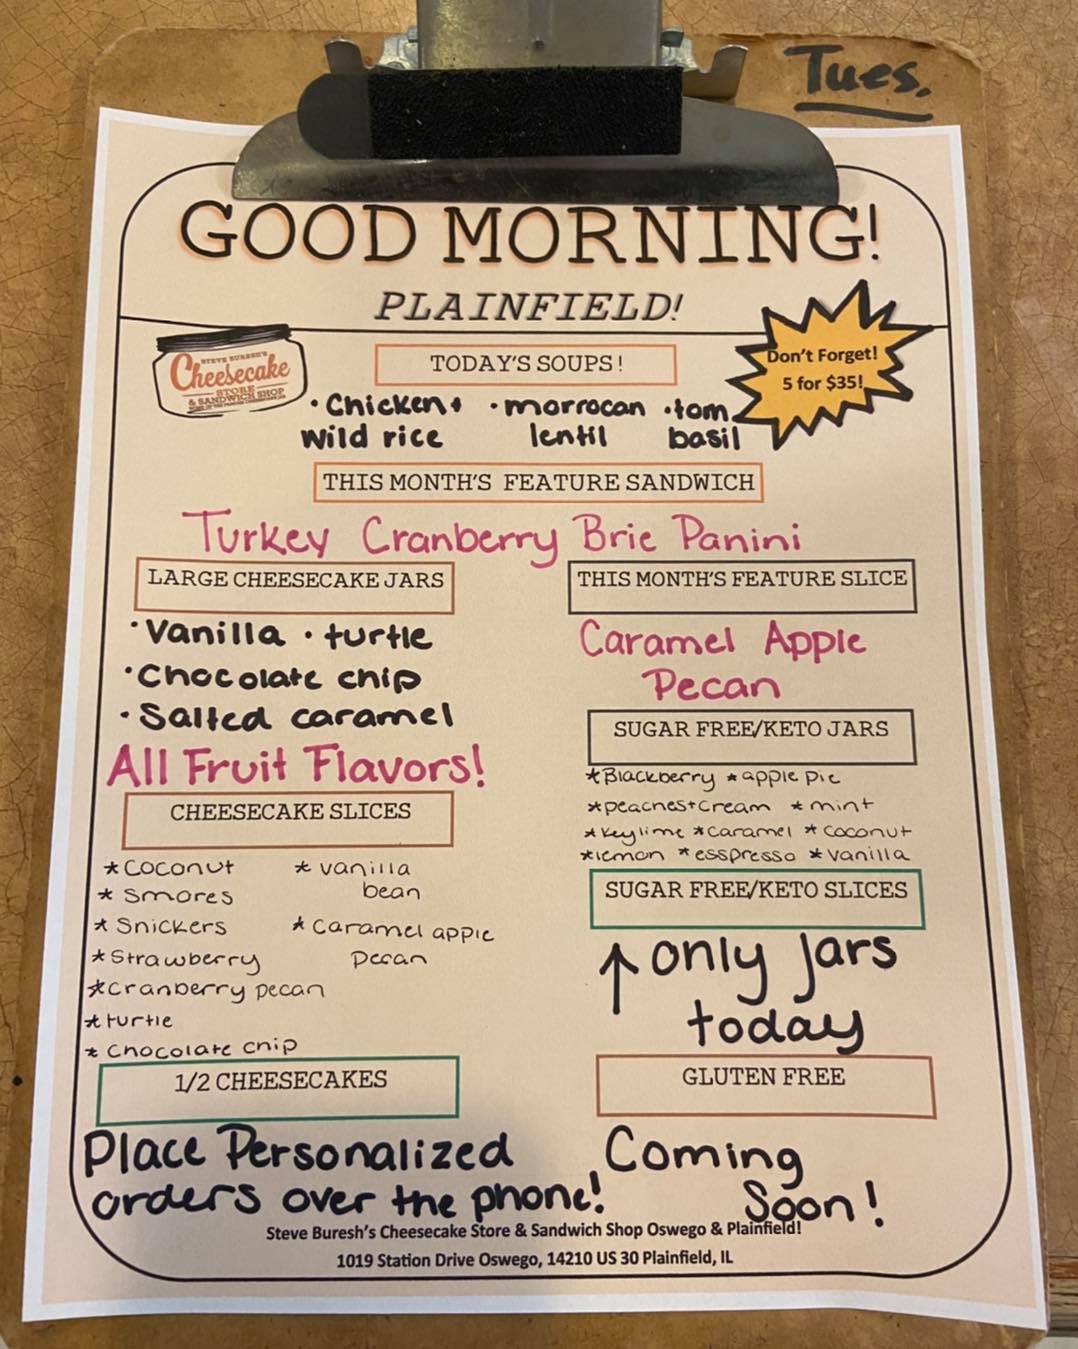 Tues.
GOOD MORNING!
PLAINFIELD!
STEVE BURESH'S
Cheesecake
STORE
& SANDWICH SHOP
Don't Forget!
5 for $35!
TODAY'S SOUPS!
• Chicken + • morrocan • tom.
wild rice lentil basil
THIS MONTH'S FEATURE SANDWICH
Turkey Cranberry Brie Panini
LARGE CHEESECAKE JARS
• Vanilla • turtle
• Chocolate chip
• Salted caramel
All Fruit Flavors!
THIS MONTH'S FEATURE SLICE
Caramel Apple
Pecan
SUGAR FREE/KETO JARS
*Blackberry *apple pie
*peaches+cream *mint
*keylime *caramel *coconut
*lemon *esspresso *vanilla
CHEESECAKE SLICES
*Coconut *vanilla
bean
*Smores
*Snickers *Caramel apple
pecan
*Strawberry
*cranberry pecan
*turtle
*Chocolate chip
SUGAR FREE/KETO SLICES
↑ only jars
today
1/2 CHEESECAKES
Place Personalized
orders over the phone!
GLUTEN FREE
Coming
Soon!
Steve Buresh's Cheesecake Store & Sandwich Shop Oswego & Plainfield!
1019 Station Drive Oswego, 14210 US 30 Plainfield, IL